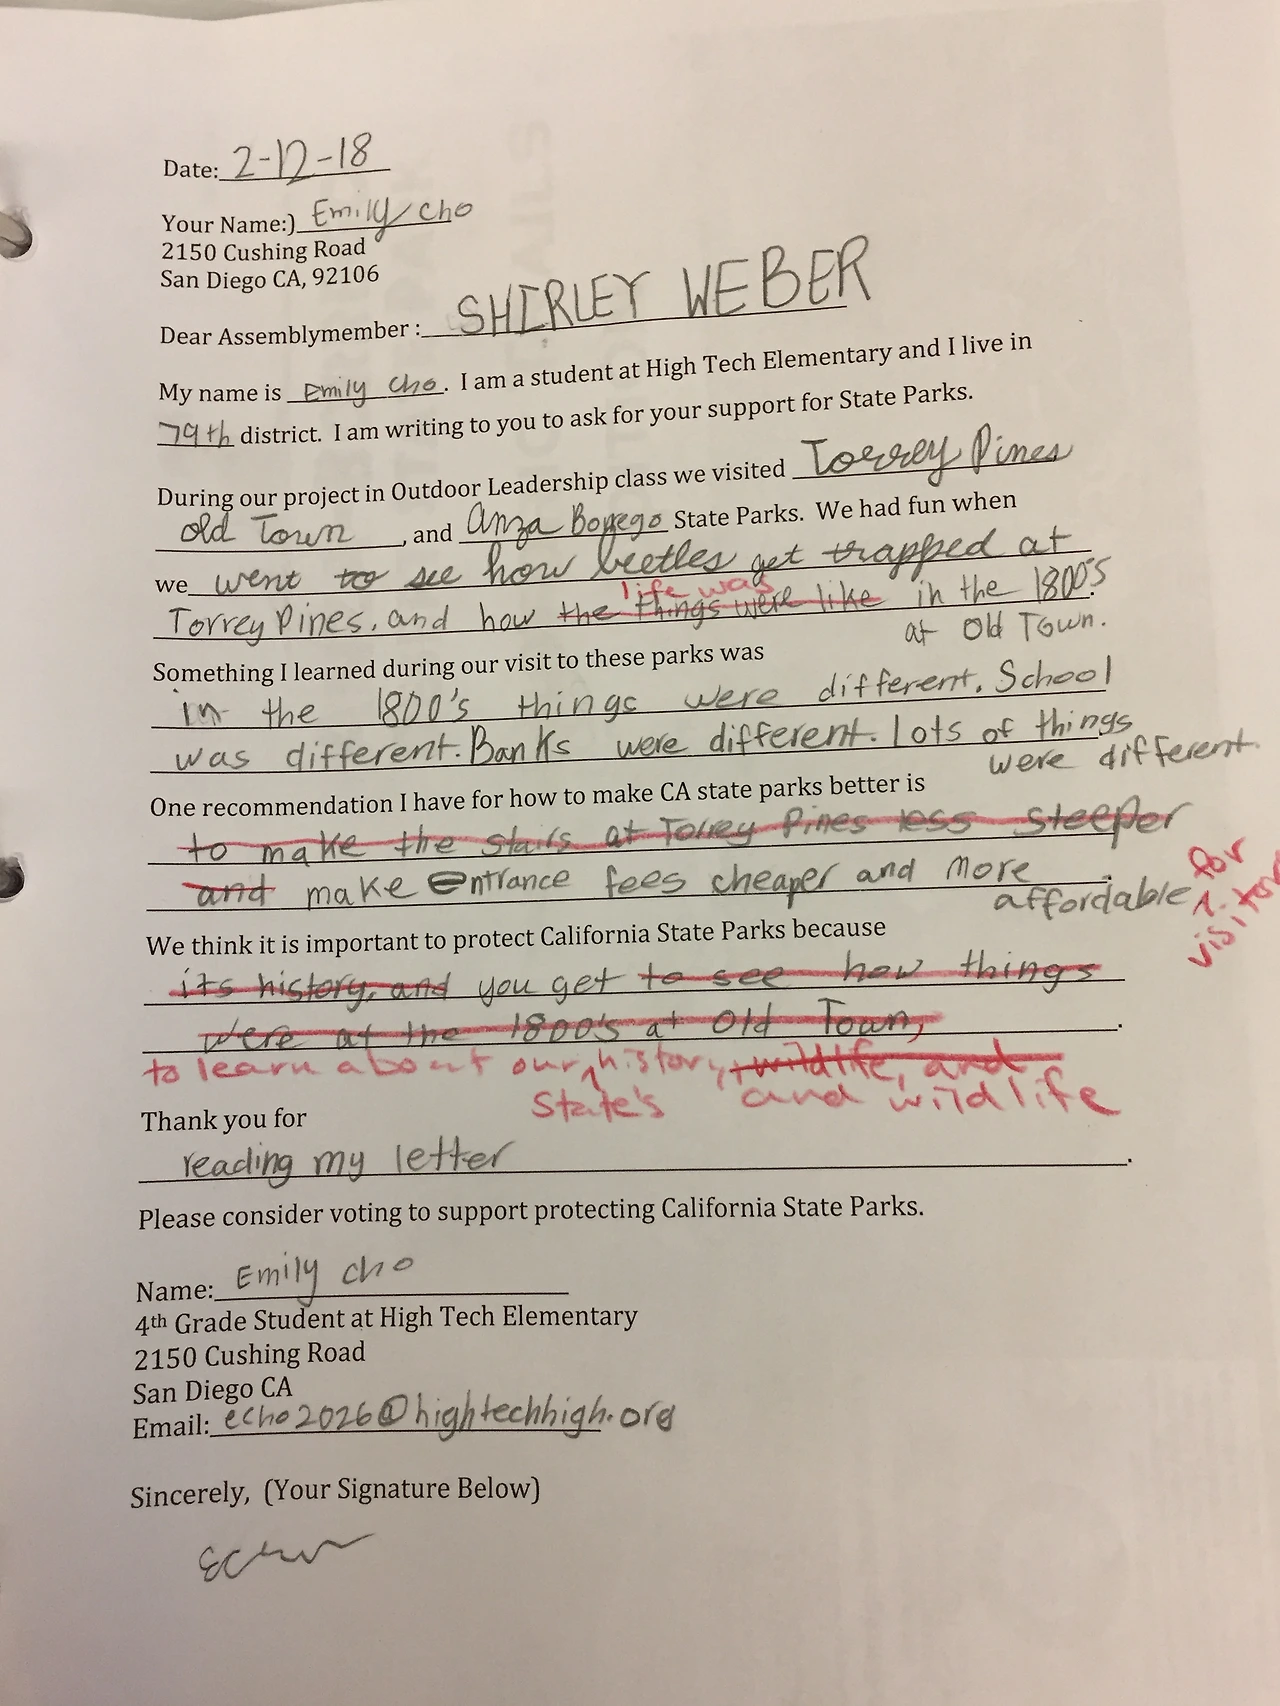 Date: 2-12-18
Your Name:) Emily Cho
2150 Cushing Road
San Diego CA, 92106
Dear Assemblymember : SHIRLEY WEBER
My name is Emily Cho. I am a student at High Tech Elementary and I live in
79th district. I am writing to you to ask for your support for State Parks.
During our project in Outdoor Leadership class we visited Torrey Pines
Old Town, and Anza Borrego State Parks. We had fun when
we went to see how beetles get trapped at
life was
Torrey Pines, and how the things were like in the 1800's.
at Old Town.
Something I learned during our visit to these parks was
in the 1800's things were different. School
was different. Banks were different. Lots of things
were different.
One recommendation I have for how to make CA state parks better is
to make the stairs at Torrey Pines less steeper
and make entrance fees cheaper and more
affordable for visitors
We think it is important to protect California State Parks because
its history, and you get to see how things
were at the 1800's at Old Town, .
to learn about our history, wildlife, and
State's and wildlife
Thank you for
reading my letter .
Please consider voting to support protecting California State Parks.
Name: Emily Cho
4th Grade Student at High Tech Elementary
2150 Cushing Road
San Diego CA
Email: echo2026@hightechhigh.org
Sincerely, (Your Signature Below)